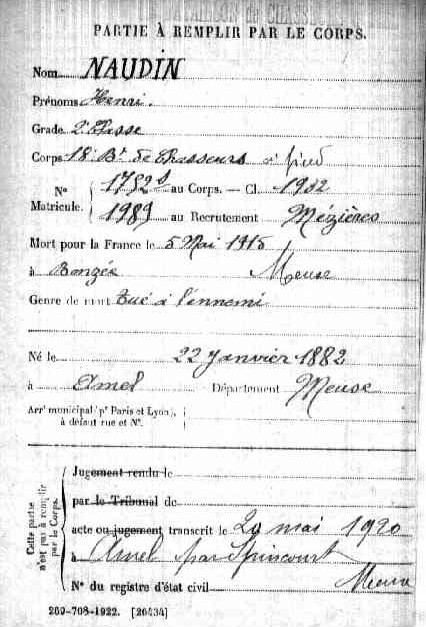 PARTIE À REMPLIR PAR LE CORPS.
Nom NAUDIN
Prénoms Henri.
Grade 2e Classe
Corps 18e Bn de Chasseurs à pied
N° 1782 au Corps. — Cl. 1902
Matricule. 1989 au Recrutement Mézières
Mort pour la France le 5 Mai 1915
à Ronzée Meuse
Genre de mort tué à l'ennemi
Né le 22 Janvier 1882
à Amel Département Meuse
Arrt municipal (pr Paris et Lyon),
à défaut rue et N°.
Cette partie
n'est pas à remplir
par le Corps.
Jugement rendu le
par le Tribunal de
acte ou jugement transcrit le 29 mai 1920
à Amel par Spincourt
N° du registre d'état civil Meuse
269-708-1922. [26434]